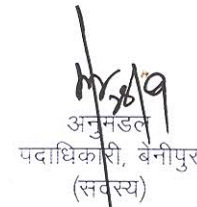 अनुमंडल
पदाधिकारी, बेनीपुर
(सदस्य)